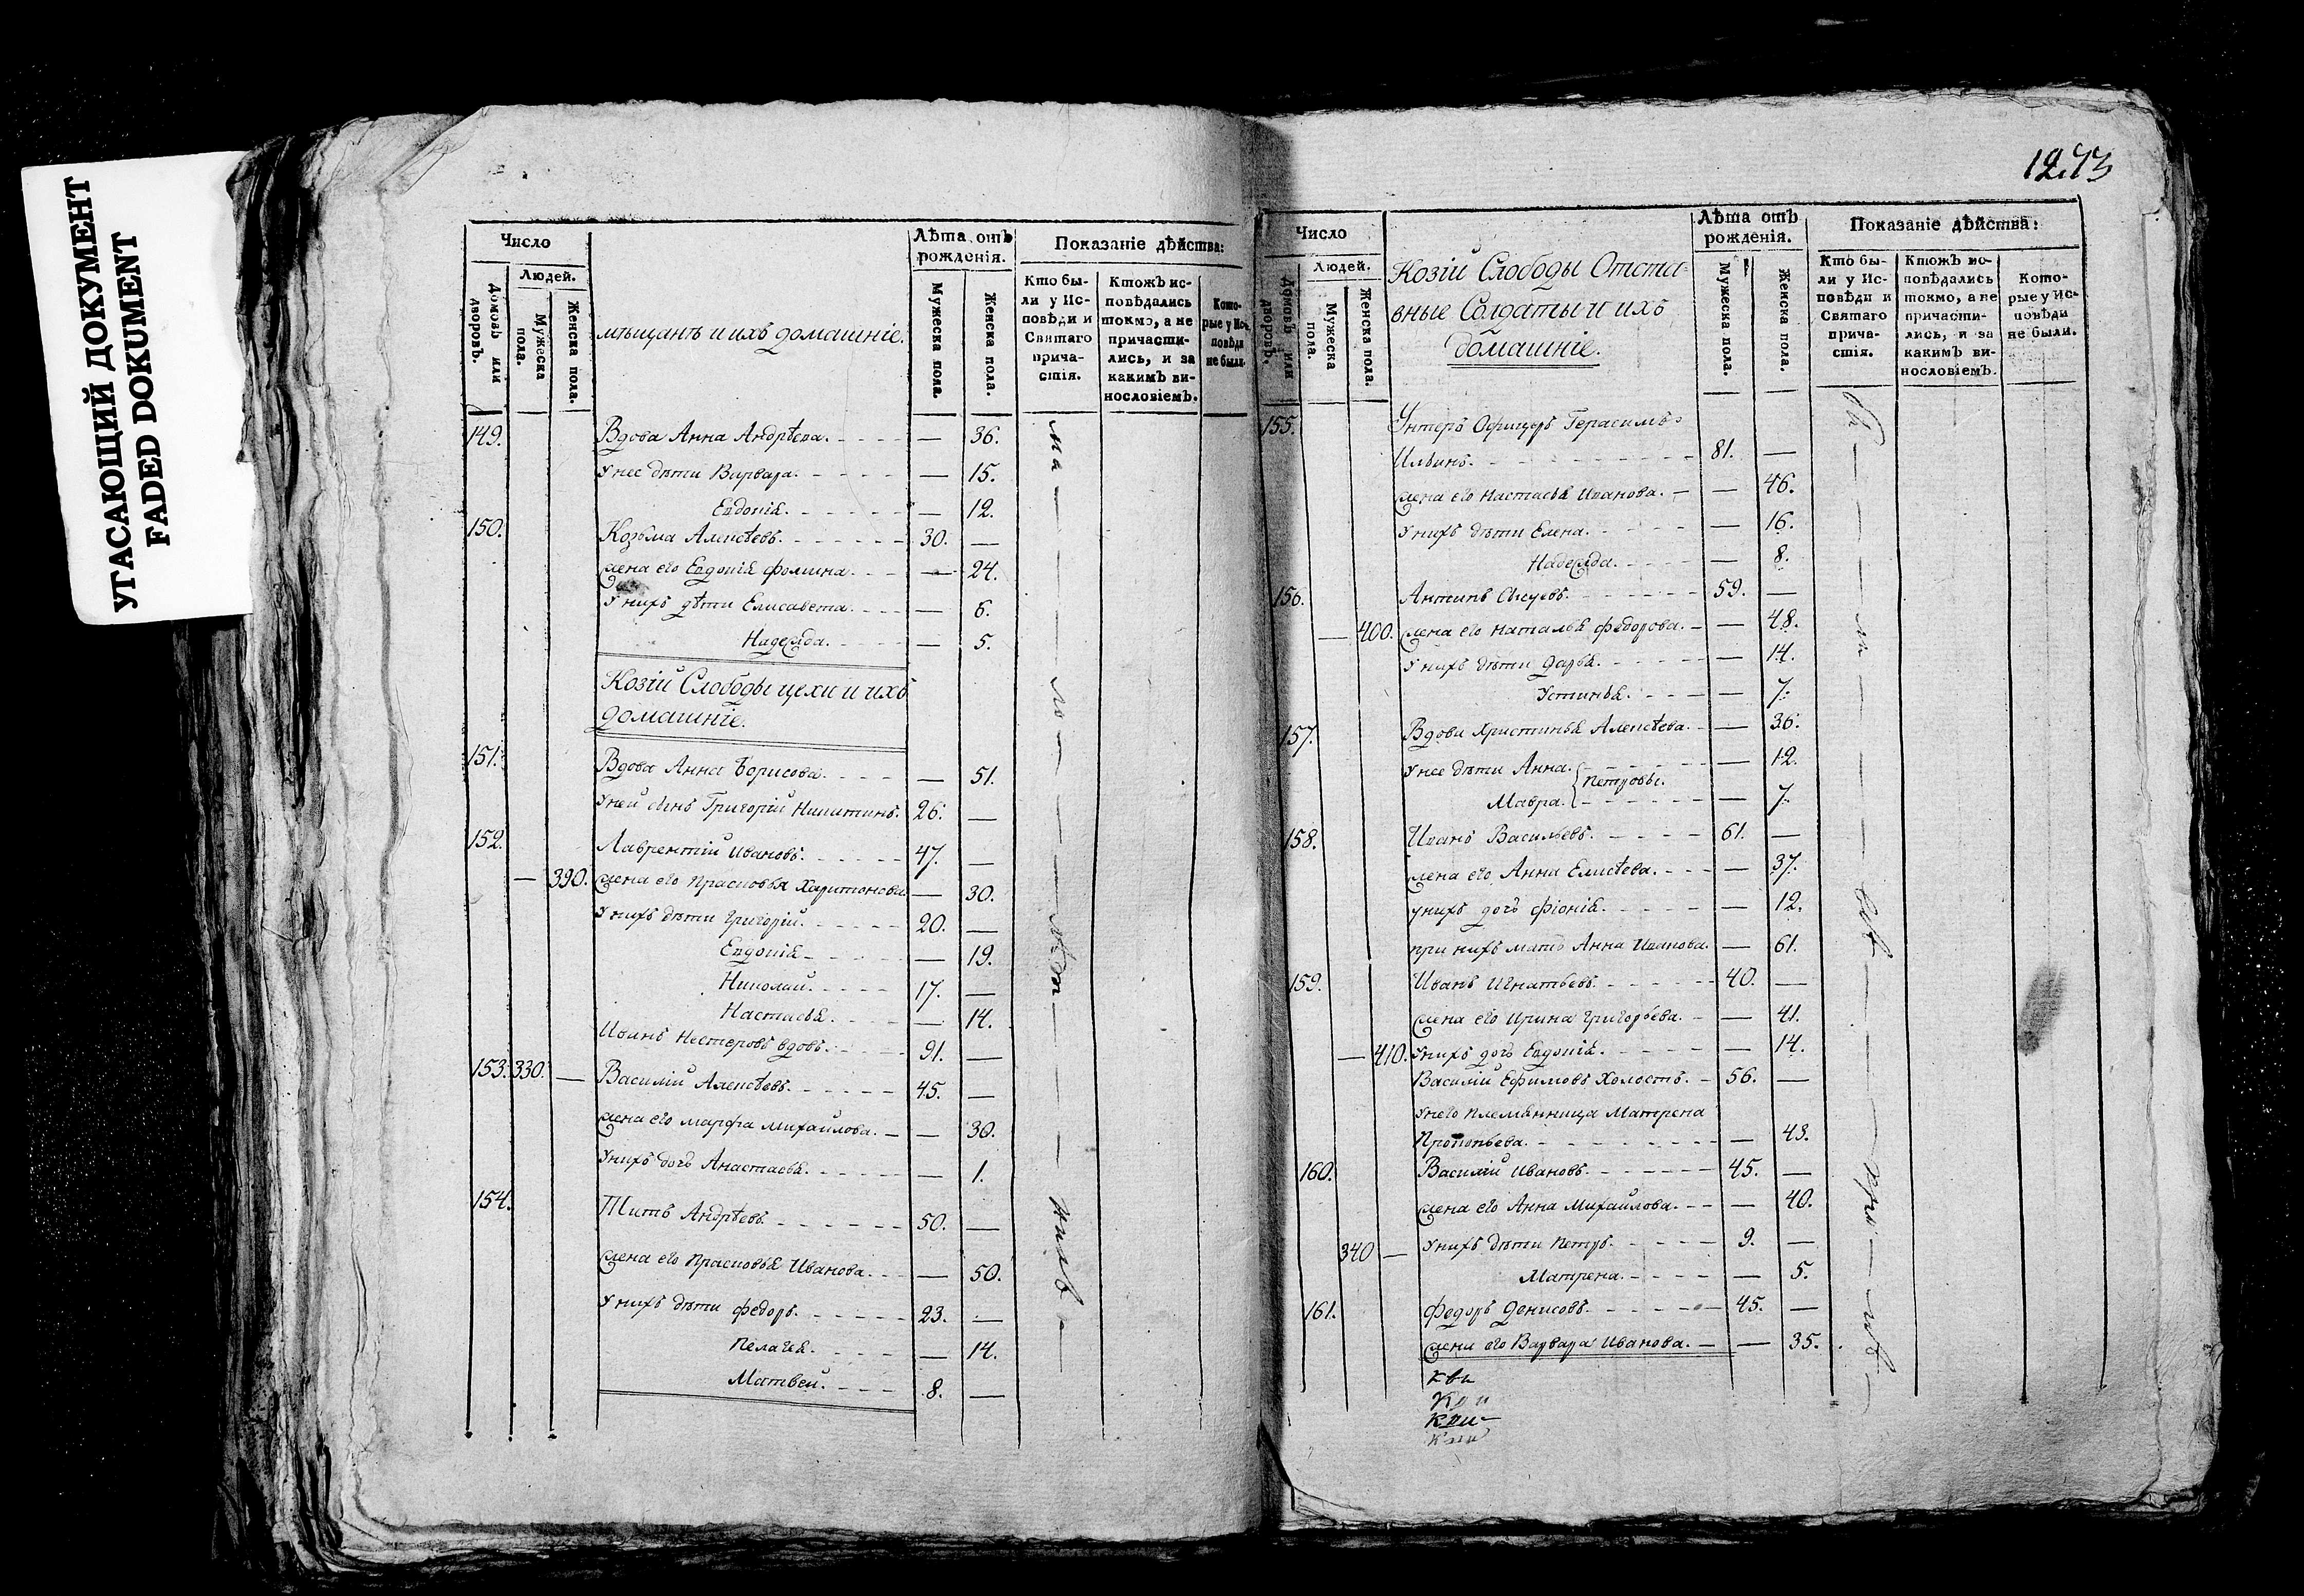 УГАСАЮЩИЙ ДОКУМЕНТ
FADED DOKUMENT
Число
Людей.
Домовъ или дворовъ.
Мужеска пола.
Женска пола.
мѣщанъ и ихъ домашніе.
Лѣта отъ рожденія.
Мужеска пола.
Женска пола.
Показаніе дѣйства:
Кто были у Исповѣди и Святаго причастія.
Ктожъ исповѣдались токмо, а не причастились, и за какимъ винословіемъ.
Которые у Исповѣди не были.
149. Вдова Анна Андрѣева. — 36.
У нее дѣти Варвара. — 15.
Евдокія. — 12.
150. Козьма Алексѣевъ. 30. —
жена его Евдокія Фомина. — 24.
У нихъ дѣти Елисавета. — 6.
Надежда. — 5.
Козій Слободы цехи и ихъ
домашніе.
151. Вдова Анна Борисова. — 51.
У ней сынъ Григорій Никитинъ. 26. —
152. Лаврентій Ивановъ. 47. —
— 390. жена его Прасковья Харитонова — 30.
У нихъ дѣти Григорій. 20. —
Евдокія — 19.
Николай. 17. —
Настасья. — 14.
Иванъ Нестеровъ вдовъ. 91. —
153. 330. — Василій Алексѣевъ. 45. —
жена его Марфа Михайлова. — 30.
У нихъ дочь Анастасья. — 1.
154. Титъ Андрѣевъ 50. —
жена его Прасковья Иванова. — 50.
У нихъ дѣти Федоръ. 23. —
Пелагея. — 14.
Матвей. 8. —
1273
Число
Людей.
Домовъ или дворовъ.
Мужеска пола.
Женска пола.
Козій Слободы Отста-
вные Солдаты и ихъ
домашніе.
Лѣта отъ рожденія.
Мужеска пола.
Женска пола.
Показаніе дѣйства:
Кто были у Исповѣди и Святаго причастія.
Ктожъ исповѣдались токмо, а не причастились, и за какимъ винословіемъ.
Которые у Исповѣди не были.
155. Унтеръ Офицеръ Герасимъ
Ильинъ. 81. —
жена его Настасья Иванова. — 46.
У нихъ дѣти Елена. — 16.
Надежда. — 8.
156. Антипъ 59. —
— 400. жена его Наталья Федорова. — 48.
У нихъ дѣти Дарья. — 14.
Устинья. — 7.
157. Вдова Христинья Алексѣева. — 36.
У нее дѣти Анна. — 12.
Петровы.
Мавра. — 7.
158. Иванъ Васильевъ. 61. —
жена его Анна Елисѣева. — 37.
У нихъ дочь Фіонія. — 12.
При нихъ мать Анна Иванова. — 61.
159. Иванъ Игнатьевъ. 40. —
жена его Ирина Григорьева. — 41.
— 410. У нихъ дочь Евдокія. — 14.
Василій Ефимовъ Холостъ. 56. —
У него племянница Матрена
Прокопьева. — 43.
160. Василій Ивановъ. 45. —
жена его Анна Михайлова. — 40.
340 — У нихъ дѣти Петръ. 9. —
Матрена. — 5.
161. Федоръ Денисовъ. 45. —
жена его Варвара Иванова. — 35.